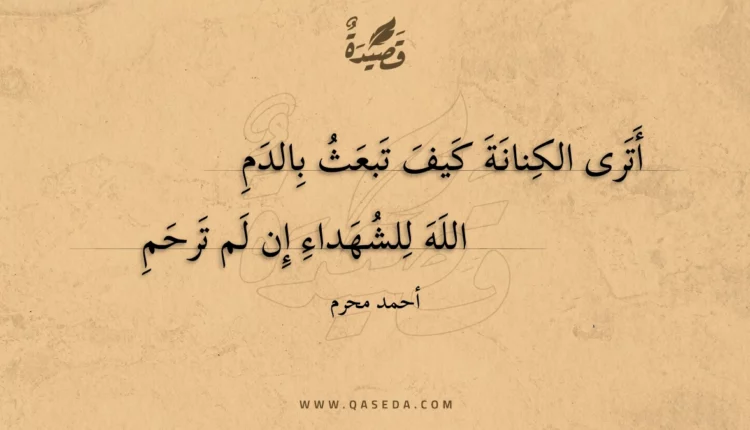 قَصِيْدَةٌ
أَتَرى الكِنانَةَ كَيفَ تَبعَثُ بِالدَمِ
اللَهَ لِلشُهَداءِ إِن لَم تَرحَمِ
أحمد محرم
WWW.QASEDA.COM